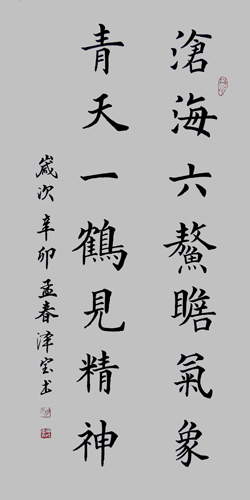 滄海六鰲瞻氣象
青天一鶴見精神
歲次辛卯孟春澤宝书